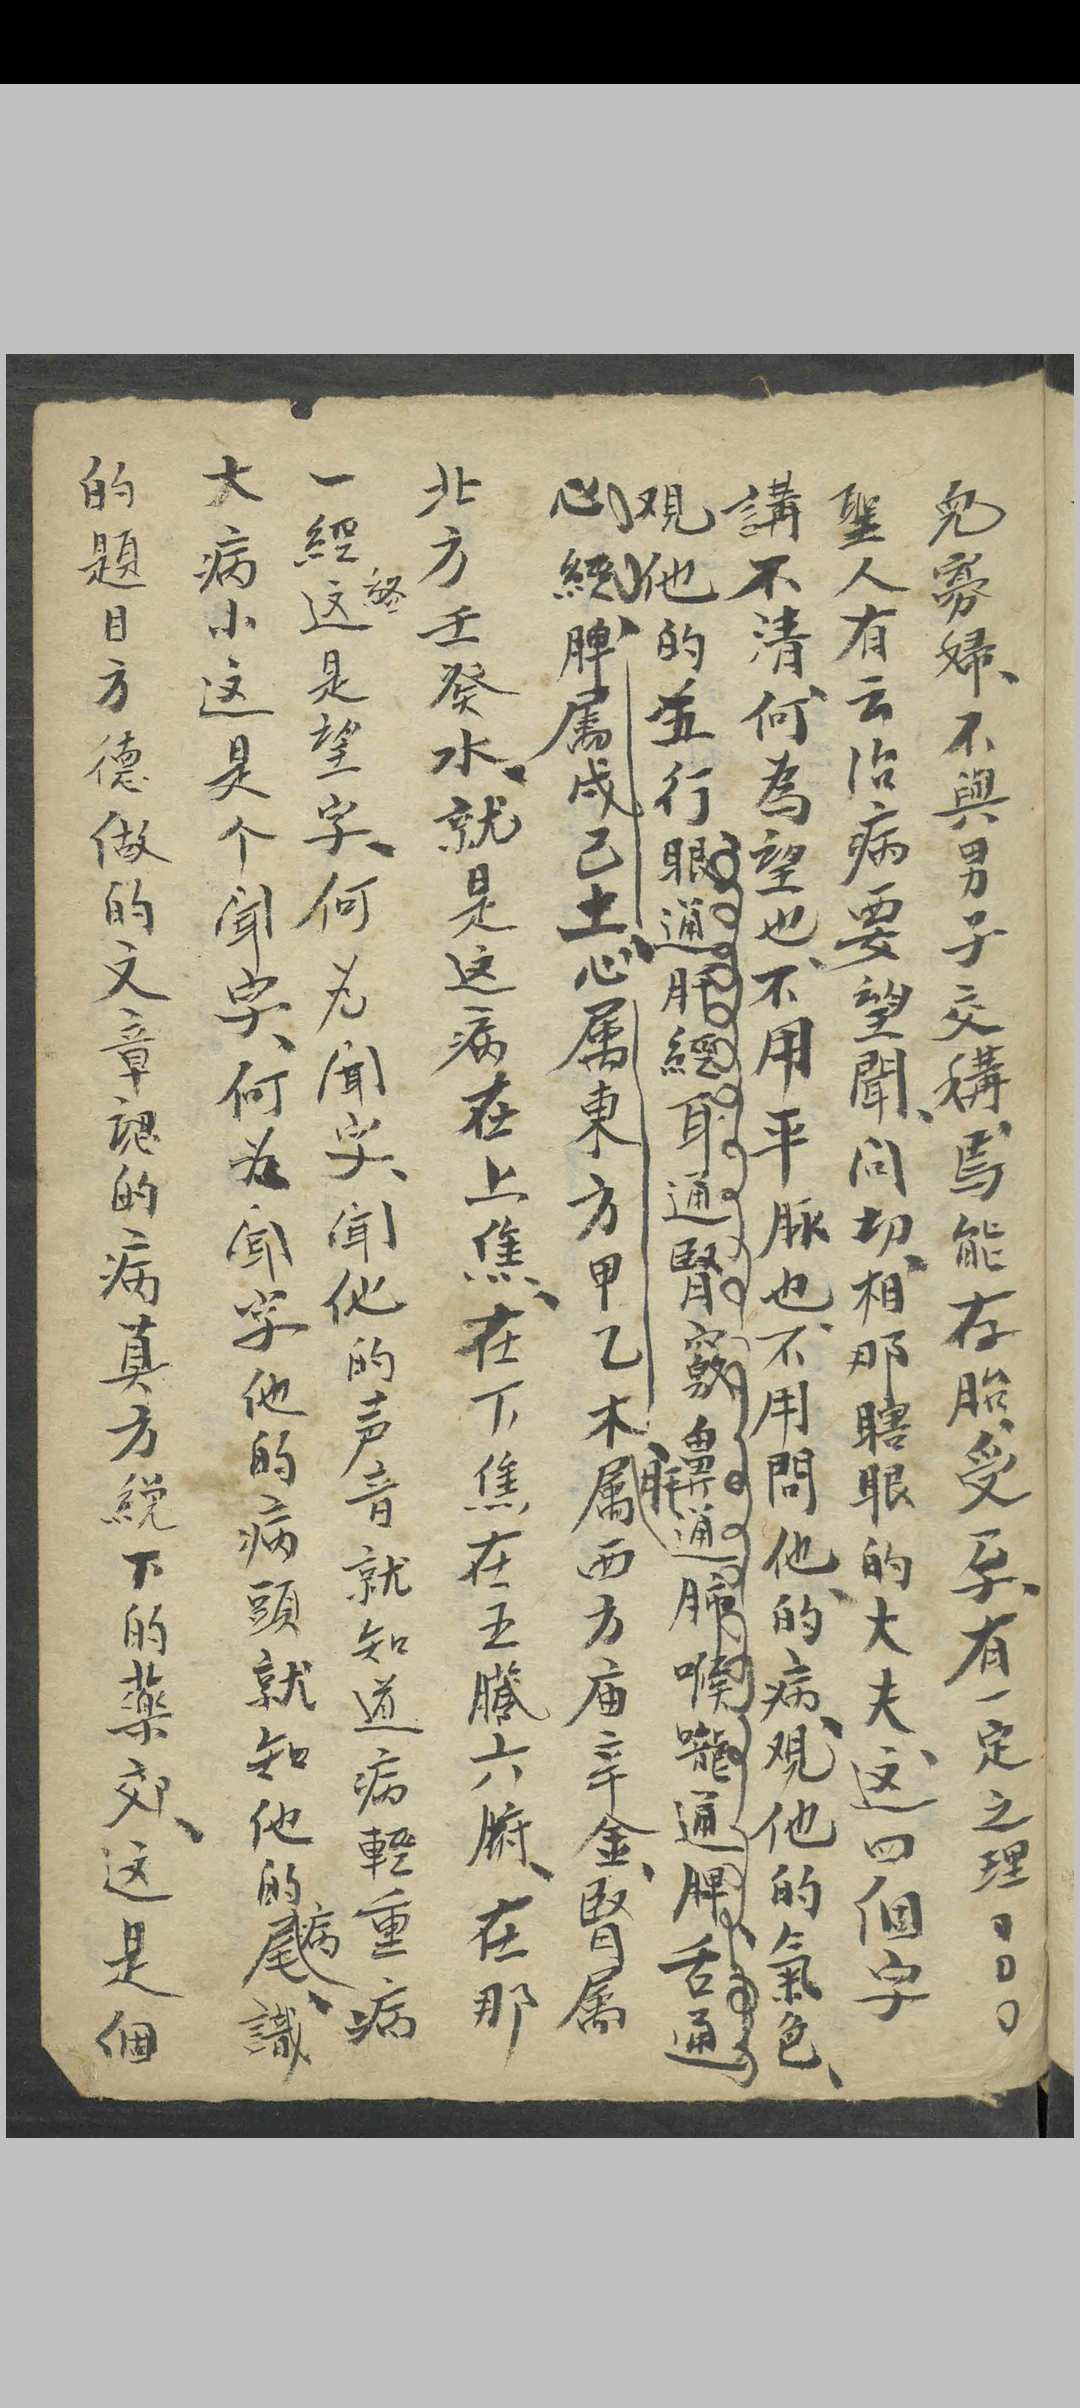 兒寡婦、不與男子交構、焉能存胎、受孕、有一定之理
聖人有云治病要望聞、问切、相那瞎眼的大夫、这四個字
講不清何為望也、不用平脈也、不用問他的病、观他的氣色、
观他的五行眼通肝經耳通腎竅鼻通肺喉嚨通脾舌通
心經、脾属戊己土、心属東方甲乙木、肝属西方庙辛金、腎属
北方壬癸水、就是这病在上焦、在下焦在五臟六腑、在那
一經这是望字、何为聞字、聞他的声音就知道病輕重病
大病小这是个聞字、何为聞字他的病頭就知他的病尾、識
的題目方德做的文章認的病真方綐下的藥郊、这是個